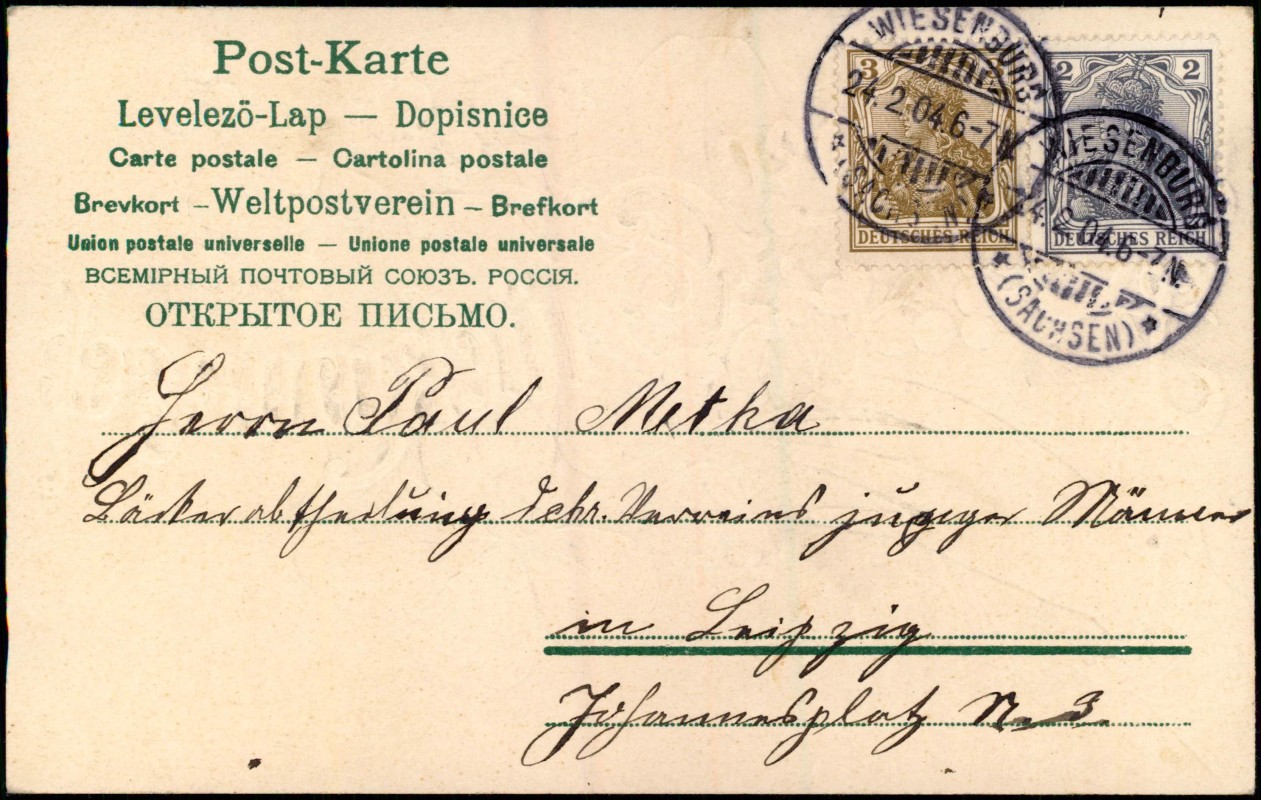 Post-Karte
Levelezö-Lap — Dopisnice
Carte postale — Cartolina postale
Brevkort – Weltpostverein – Brefkort
Union postale universelle — Unione postale universale
ВСЕМІРНЫЙ ПОЧТОВЫЙ СОЮЗЪ. РОССІЯ.
ОТКРЫТОЕ ПИСЬМО.
WIESENBURG
24.2.04.6-7N.
(SACHSEN)
3
DEUTSCHES REICH
2 2
DEUTSCHES REICH
WIESENBURG
24.2.04.6-7N.
(SACHSEN)
Herrn Paul Metka
Bäckerabtheilung Vereins junger Männer
in Leipzig
Johannesplatz N. 3.